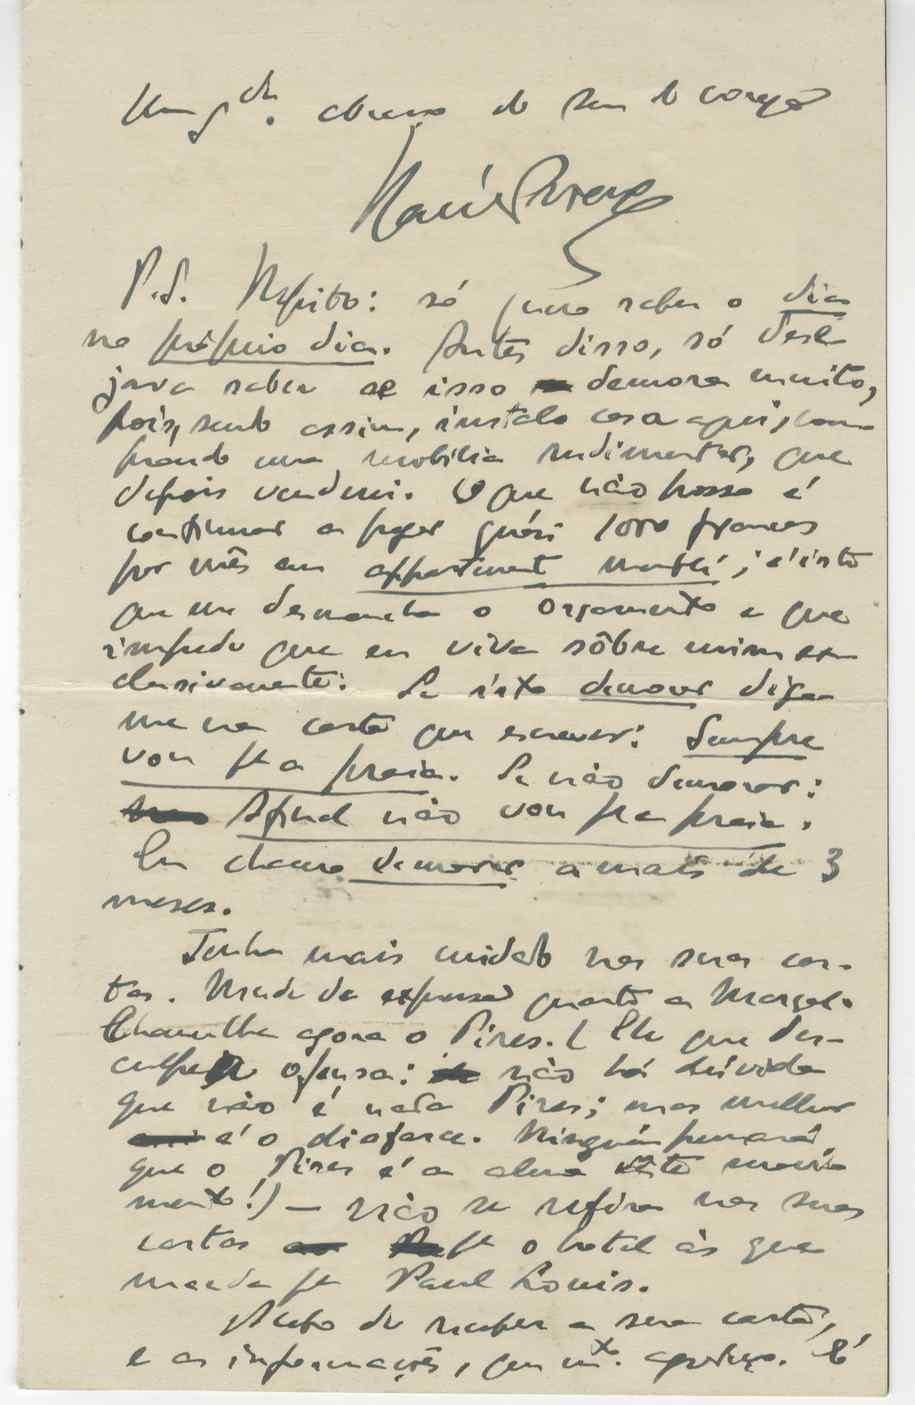 Um gde. abraço do seu do coração
P.S. Repito: só quero saber o dia
no próprio dia. Antes disso, só dese-
java saber se isso demora muito,
pois, sendo assim, instalo casa aqui, com-
prando uma mobília rudimentar, que
depois venderei. O que não posso é
continuar a pagar quási 1000 francos
por mês em appartement meublé; é isto
que me desmancha o orçamento e que
impede que eu viva sôbre mim ex-
clusivamente. Se isto demorar diga-
me na carta que escrever: Sempre
vou pa a praia. Se não demorar:
Afinal não vou pa a praia.
Eu chamo demorar a mais de 3
meses.
Tenha mais cuidado nas suas car-
tas. Mude de expressão quanto a
Chame-lhe agora o Pires. (Ele que des-
culpe a ofensa: não há dúvida
que não é nada Pires; mas melhor
é o disfarce. Ninguém pensará
que o Pires é a alma dêste movi-
mento!) — não se refira nas suas
cartas pa o hotel às que
manda pa Paul Louis.
Acabo de receber a sua carta,
e as informações, que mto. agradeço. É